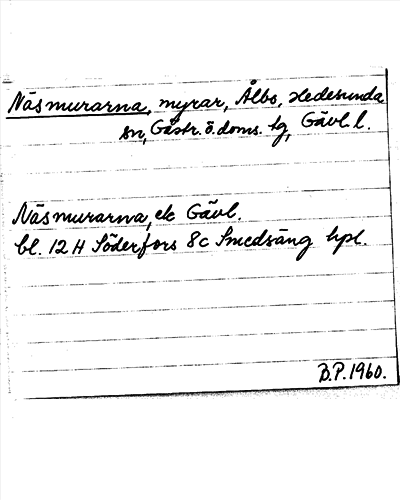 Näsmurarna, myrar, Ålbo, Hedesunda
sn, Gästr. ö. doms. tg, Gävl. l.
Näsmurarna, ek Gävl.
bl. 12 H Söderfors 8c Smedsäng hpl.
B.P. 1960.